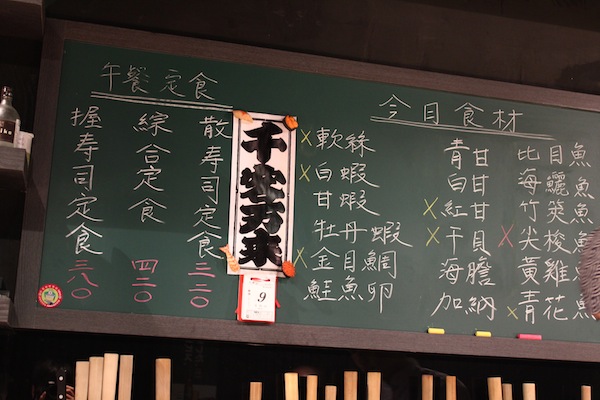 午餐定食
散壽司定食
三二〇
綜合定食
四二〇
握壽司定食
三八〇
千客万来
9
今日食材
x軟絲
x白蝦
甘蝦
牡丹蝦
x金目鯛
鮭魚卵
青甘
白甘
x紅甘
x干貝
海膽
加納
比目魚
海鱺魚
竹筴魚
x尖梭魚
黃雞魚
x青花魚